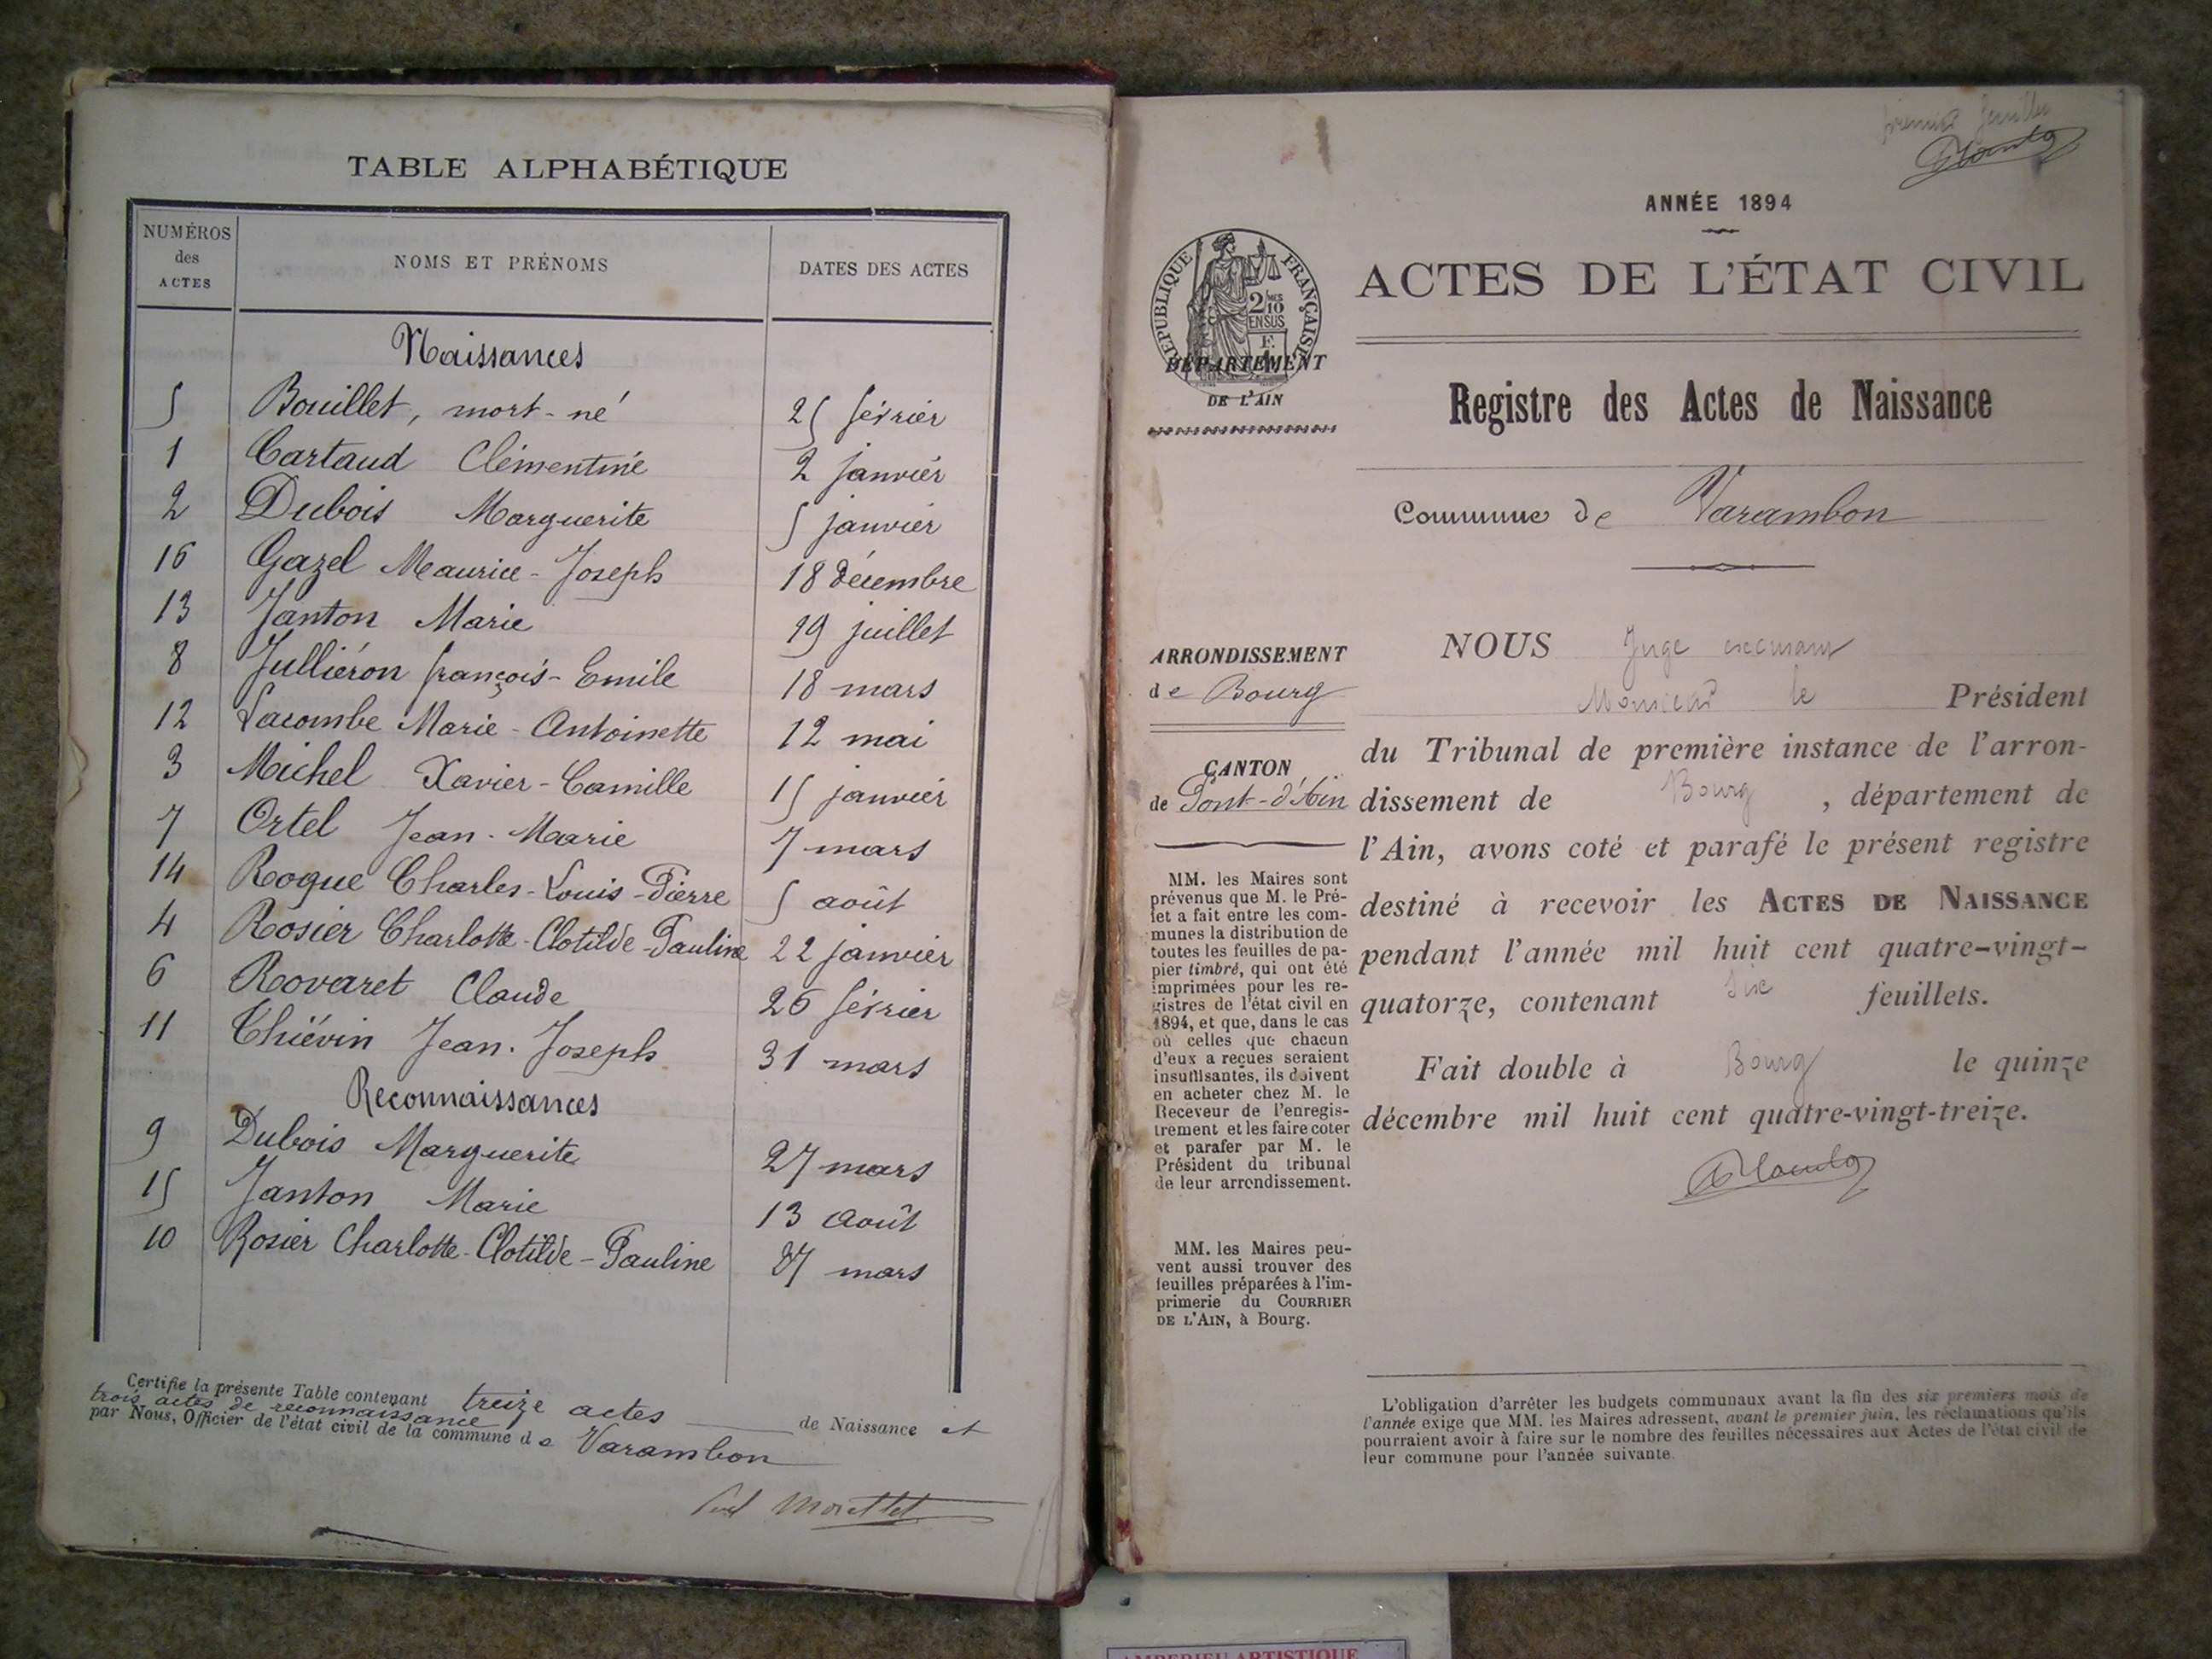 TABLE ALPHABÉTIQUE
NUMÉROS des ACTES
NOMS ET PRÉNOMS
DATES DES ACTES
Naissances
5 Bouillet, mort-né 25 février
1 Cartaud Clémentine 2 janvier
2 Dubois Marguerite 5 janvier
16 Gazel Maurice-Joseph 18 décembre
13 Janton Marie 19 juillet
8 Julliéron françois-Emile 18 mars
12 Lacombe Marie-Antoinette 12 mai
3 Michel Xavier-Camille 15 janvier
7 Ortel Jean-Marie 7 mars
14 Rogue Charles-Louis-Pierre 5 août
4 Rosier Charlotte-Clotilde-Pauline 22 janvier
6 Rovaret Claude 26 février
11 Thiévin Jean-Joseph 31 mars
Reconnaissances
9 Dubois Marguerite 27 mars
15 Janton Marie 13 août
10 Rosier Charlotte-Clotilde-Pauline 27 mars
Certifie la présente Table contenant treize actes de Naissance et
trois actes de reconnaissance
par Nous, Officier de l'état civil de la commune de Varambon
Morettet
premier feuillet
ANNÉE 1894
ACTES DE L'ÉTAT CIVIL
RÉPUBLIQUE FRANÇAISE
2/10 MES
EN SUS
DÉPARTEMENT
DE L'AIN
Registre des Actes de Naissance
Commune de Varambon
ARRONDISSEMENT
de Bourg
CANTON
de Pont-d'Ain
MM. les Maires sont
prévenus que M. le Pré-
fet a fait entre les com-
munes la distribution de
toutes les feuilles de pa-
pier timbré, qui ont été
imprimées pour les re-
gistres de l'état civil en
1894, et que, dans le cas
où celles que chacun
d'eux a reçues seraient
insuffisantes, ils doivent
en acheter chez M. le
Receveur de l'enregis-
trement et les faire coter
et parafer par M. le
Président du tribunal
de leur arrondissement.
MM. les Maires peu-
vent aussi trouver des
feuilles préparées à l'im-
primerie du COURRIER
DE L'AIN, à Bourg.
NOUS Juge
Monsieur le Président
du Tribunal de première instance de l'arron-
dissement de Bourg, département de
l'Ain, avons coté et parafé le présent registre
destiné à recevoir les ACTES DE NAISSANCE
pendant l'année mil huit cent quatre-vingt-
quatorze, contenant six feuillets.
Fait double à Bourg le quinze
décembre mil huit cent quatre-vingt-treize.
L'obligation d'arrêter les budgets communaux avant la fin des six premiers mois de
l'année exige que MM. les Maires adressent, avant le premier juin, les réclamations qu'ils
pourraient avoir à faire sur le nombre des feuilles nécessaires aux Actes de l'état civil de
leur commune pour l'année suivante.
AMBERIEU ARTISTIQUE